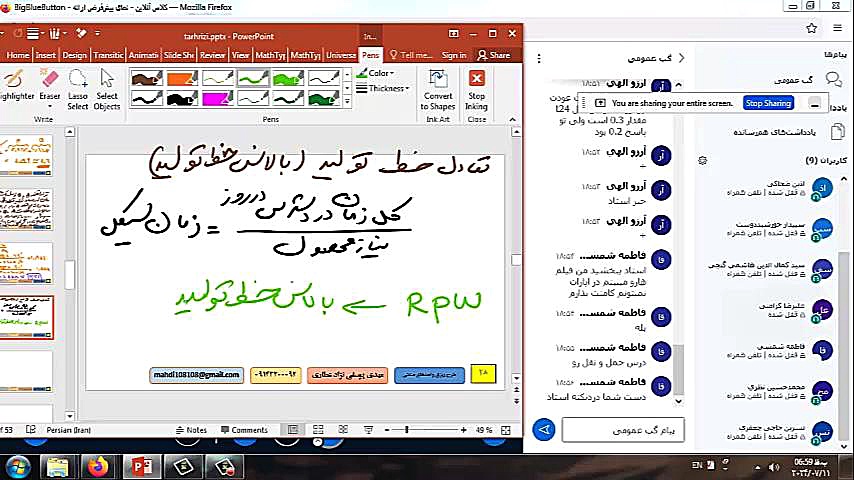 BigBlueButton - کلاس آنلاین - نمای پیش‌فرض ارائه — Mozilla Firefox
tarhrizi.pptx - PowerPoint
In...
Home
Insert
Design
Transitic
Animatic
Slide Sho
Review
View
MathTy
MathTy
Universa
Pens
Tell me...
Sign in
Share
Highlighter
Eraser
Lasso Select
Select Objects
Color
Thickness
Convert to Shapes
Stop Inking
Write
Pens
Ink Art
Close
تعادل خط تولید (بالانس خط تولید)
زمان سیکل = کل زمان در دسترس در روز
نیاز محصول
RPW ← بالانس خط تولید
mahdi108108@gmail.com
مهدی یوسفی نژاد عطاری
طرح ریزی واحدهای صنعتی
۲۸
of 53
Persian (Iran)
Notes
Comments
49 %
گپ عمومی
آرزو الهی ۱۸:۵۱
عودت
مقدار 0.3 است ولی تو
پاسخ 0.2 بود
You are sharing your entire screen.
Stop Sharing
آرزو الهی ۱۸:۵۲
+
آرزو الهی ۱۸:۵۳
خیر استاد
آرزو الهی
+
فاطمه شمسـ... ۱۸:۵۴
استاد ببخشید من فیلم
هارو میبینم در آپارات
نمیتونم کامنت بذارم
فاطمه شمسـ... ۱۸:۵۴
بله
فاطمه شمسـ... ۱۸:۵۵
درس حمل و نقل رو
فاطمه شمسـ... ۱۸:۵۶
دست شما دردنکنه استاد
پیام گپ عمومی
پیام‌ها
گپ عمومی
یادداشت‌های هم‌رسانده
کاربران (9)
قفل شده | تلفن همراه
سپیدار خورشیددوست
قفل شده | تلفن همراه
سید کمال الدین هاشمی گیجی
قفل شده | تلفن همراه
علیرضا کرامتی
قفل شده
فاطمه شمسی
قفل شده | تلفن همراه
محمدحسین نظری
قفل شده | تلفن همراه
نسرین حاجی جعفری
قفل شده | تلفن همراه
EN
06:59 ب.ظ